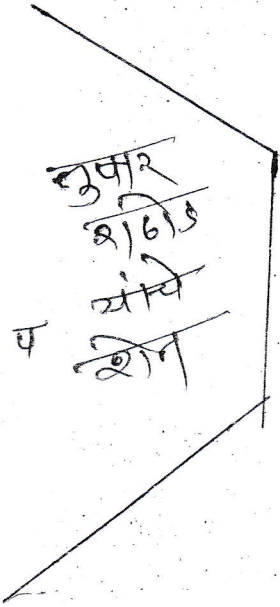 तुषार
राठोड
यांचे
प शेत